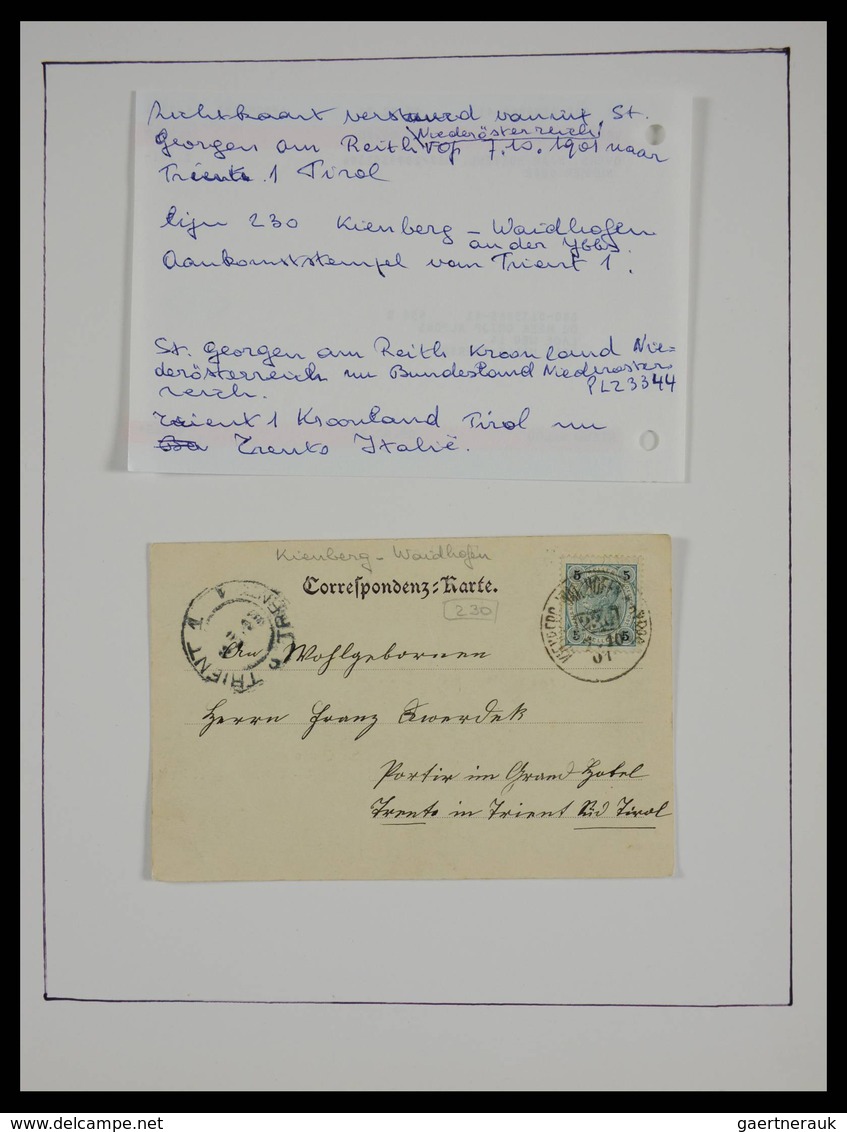 Zichtkaart verstuurd vanuit St.
Niederösterreich
Georgen am Reith op 7.10.1901 naar
Trient 1 Tirol
lijn 230 Kienberg – Waidhofen
an der Ybbs.
Aankomststempel van Trient 1.
St. Georgen am Reith Kroonland Nie-
derösterreich nu Bundesland Niederöster-
reich. PLZ 3344
Trient 1 Kroonland Tirol nu
Trento Italië.
Kienberg – Waidhofen
Correspondenz-Karte.
230
5 5
5 5
230
10
01
TRIENT 1
TRENTO 1
An Wohlgebornen
Herrn Franz Kwerdek
Portir im Grand Hotel
Trento in Trient Süd Tirol
www.delcampe.net
gaertnerauk